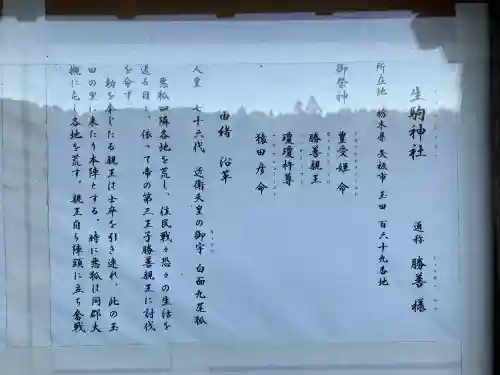 生駒神社　通称　勝善様
所在地　栃木県矢板市玉田百六十九番地
御祭神　豊受姫命
勝善親王
瓊瓊杵尊
猿田彦命
由緒　沿革
人皇　七十六代　近衛天皇の御宇　白面九尾狐
悪狐四隣各地を荒し、住民戦々恐々の生活を
送る日々、依って帝の第三王子勝善親王に討伐
を命ず
勅を奉じたる親王は士卒を引き連れ、此の玉
田の里に来たり本陣とする。時に悪狐は同郡大
槻に屯し各地を荒す。親王自ら陣頭に立ち奮戦